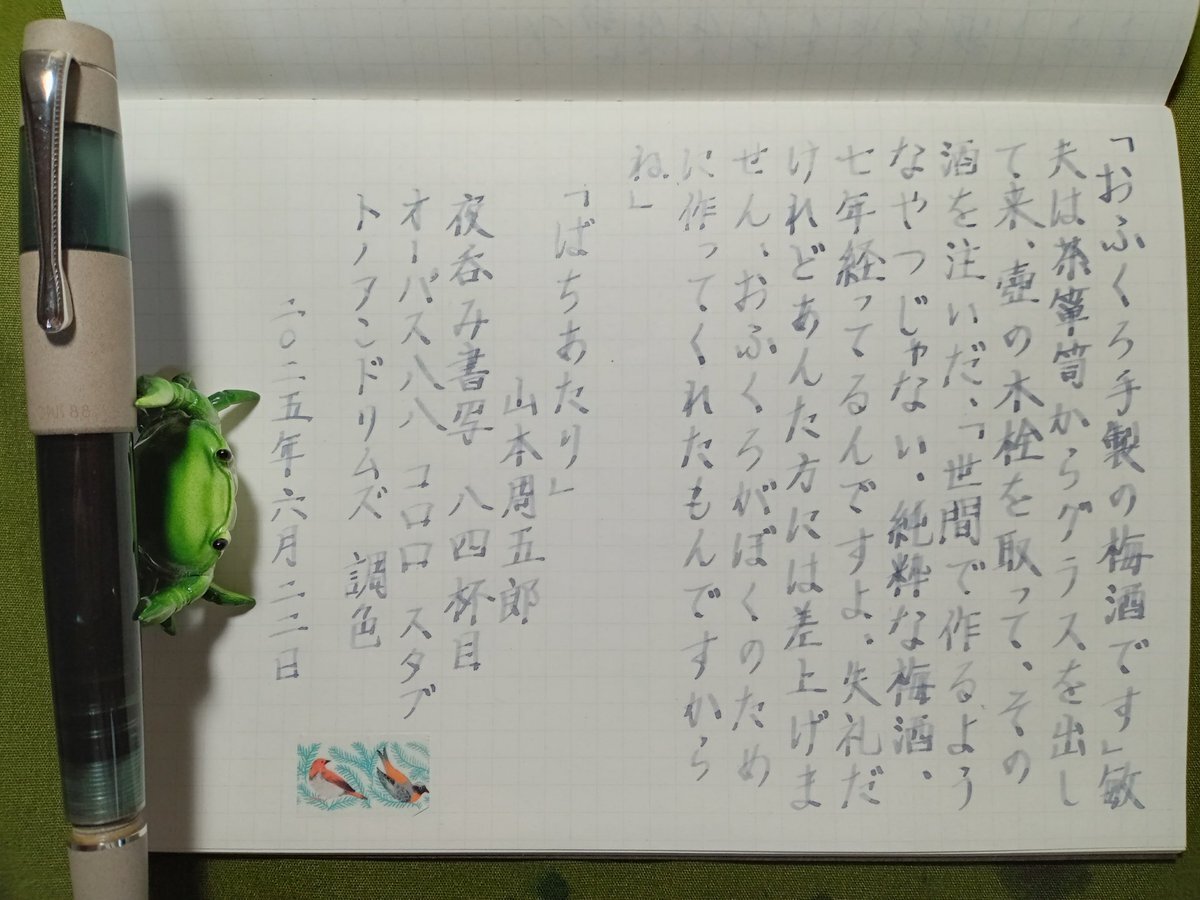 「おふくろ手製の梅酒です」敏
夫は茶簞笥からグラスを出し
て来、壺の木栓を取って、その
酒を注いだ、「世間で作るよう
なやつじゃない、純粋な梅酒、
七年経ってるんですよ、失礼だ
けれどあんた方には差上げま
せん、おふくろがぼくのため
に作ってくれたもんですから
ね」
「ばちあたり」
山本周五郎
夜呑み書写 八四杯目
オーパス八八 コロロ スタブ
トノアンドリムズ 調色
二〇二五年六月二二日